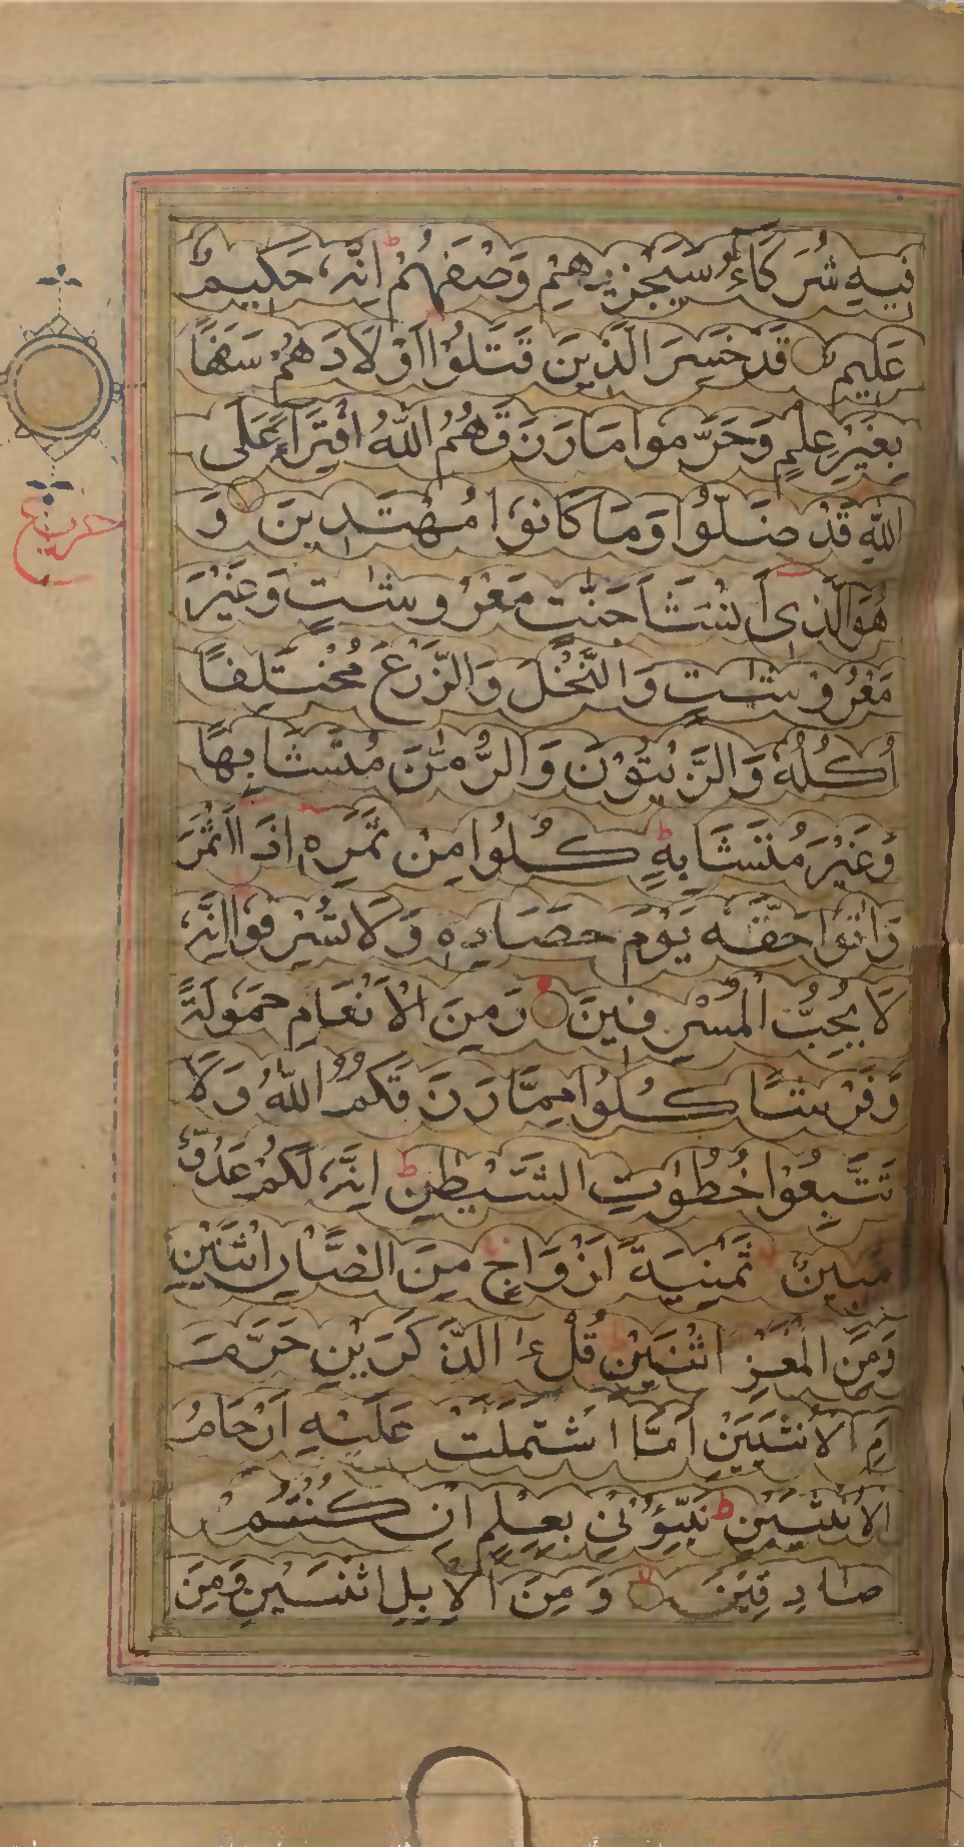 فِيهِ شُرَكَاءُ سَيَجْزِيهِمْ وَصْفَهُمْ ط اِنَّهٗ حَكِيمٌ
عَلِيمٌ قَدْ خَسِرَ الَّذِينَ قَتَلُوْا اَوْلَادَهُمْ سَفَهًا
بِغَيْرِ عِلْمٍ وَحَرَّمُوا مَا رَزَقَهُمُ اللّٰهُ افْتِرَاءً عَلَى
اللّٰهِ قَدْ ضَلُّوْا وَمَا كَانُوْا مُهْتَدِينَ وَ
هُوَ الَّذِى اَنْشَاَ جَنّٰتٍ مَعْرُوشٰتٍ وَغَيْرَ
مَعْرُوْشٰتٍ وَالنَّخْلَ وَالزَّرْعَ مُخْتَلِفًا
اُكُلُهٗ وَالزَّيْتُوْنَ وَالرُّمَّٰنَ مُتَشَابِهًا
وَغَيْرَ مُتَشَابِهٍ ط كُلُوْا مِنْ ثَمَرِهٖ اِذَا اَثْمَرَ
وَاٰتُوْا حَقَّهٗ يَوْمَ حَصَادِهٖ وَلَا تُسْرِفُوْا اِنَّهٗ
لَا يُحِبُّ الْمُسْرِفِينَ وَمِنَ الْاَنْعَامِ حَمُوْلَةً
وَفَرْشًا كُلُوْا مِمَّا رَزَقَكُمُ اللّٰهُ وَلَا
تَتَّبِعُوْا خُطُوٰتِ الشَّيْطٰنِ ط اِنَّهٗ لَكُمْ عَدُوٌّ
مُبِينٌ ثَمٰنِيَةَ اَزْوَاجٍ مِنَ الضَّاْنِ اثْنَيْنِ
وَمِنَ الْمَعْزِ اثْنَيْنِ ط قُلْ ءٰالذَّكَرَيْنِ حَرَّمَ
اَمِ الْاُنْثَيَيْنِ اَمَّا اشْتَمَلَتْ عَلَيْهِ اَرْحَامُ
الْاُنْثَيَيْنِ ط نَبِّؤُنِيْ بِعِلْمٍ اِنْ كُنْتُمْ
صٰادِقِيْنَ وَمِنَ الْاِبِلِ اثْنَيْنِ وَمِنَ